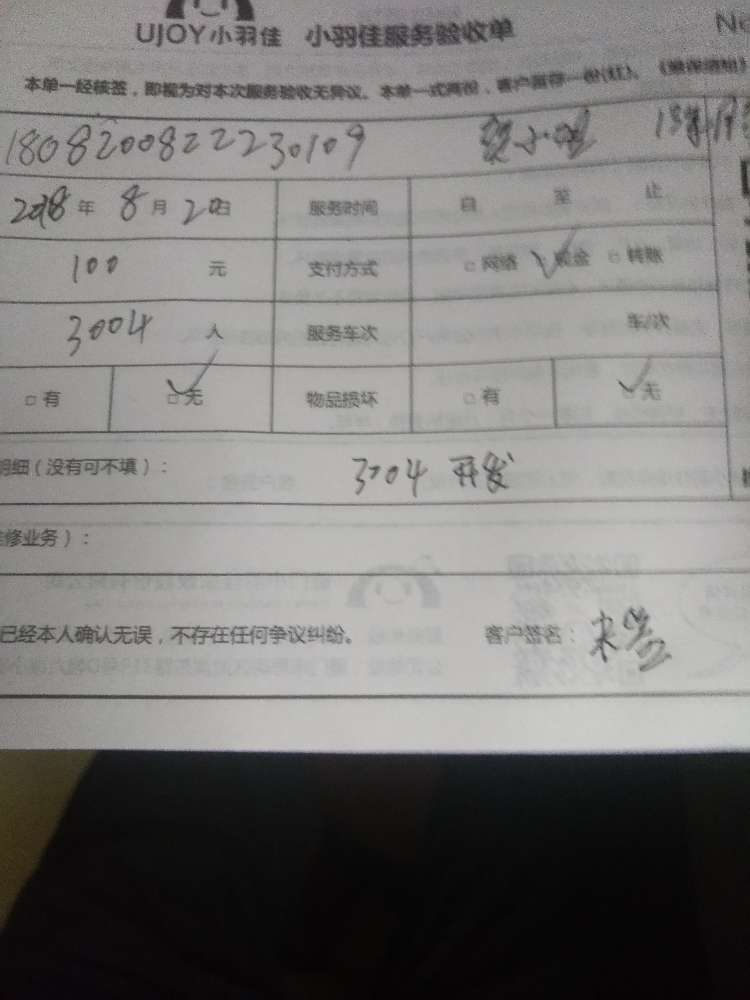 UJOY小羽佳 小羽佳服务验收单 No
本单一经核签，即视为对本次服务验收无异议。本单一式两份，客户留存一份(红)、
18082008222230109 小姐
2018年 8月20日 服务时间 自 至 止
100 元 支付方式 □网络 ✓现金 □转账
3004 人 服务车次 车/次
□有 ✓无 物品损坏 □有 ✓无
明细（没有可不填）： 3004 开发
维修业务）：
已经本人确认无误，不存在任何争议纠纷。 客户签名：未签